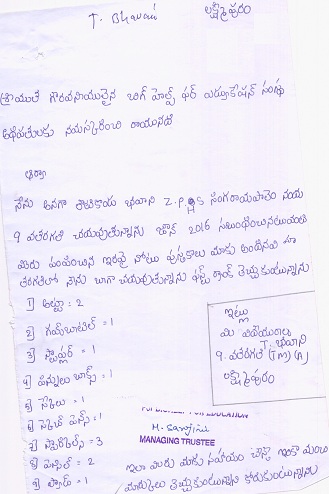 T. Bhavani లక్ష్మీపురం
శ్రీయుత గౌరవనీయులైన బిగ్ హెల్ప్ ఫర్ ఎడ్యుకేషన్ సంస్థ
అధిపతులకు నమస్కరించి రాయునది
నేను అనగా తోటకూర భవాని Z.P.H.S సంగరాయపాలెం నందు
9 వతరగతి చదువుతున్నాను జూన్ 2016
మీరు పంపించిన ఇరవై నోటు పుస్తకాలు మాకు అందినవి మా
తరగతిలో నాను బాగా చదువుతున్నాను ఫస్ట్ ర్యాంక్ తెచ్చుకుంటున్నాను
1) అట్టా = 2
2) గమ్ బాటిల్ = 1
3) స్టాప్లర్ = 1
4) పెన్నులు బాక్స్ = 1
5) స్కేలు = 1
6) స్కెచ్ పెన్స్ = 1
7) = 3
8) పెన్సిల్ = 2
9) ప్యాడ్ = 1
ఇట్లు
మీ విధేయురాలు
T. భవాని
9. వతరగతి (TM) (A)
లక్ష్మీపురం
FOR BIGHELP FOR EDUCATION
M. Sarojini
MANAGING TRUSTEE
ఇలా మీరు మాకు సహాయం చేస్తే ఇంకా మంచి
మార్కులు తెచ్చుకుంటున్నాని కోరుకుంటున్నాను